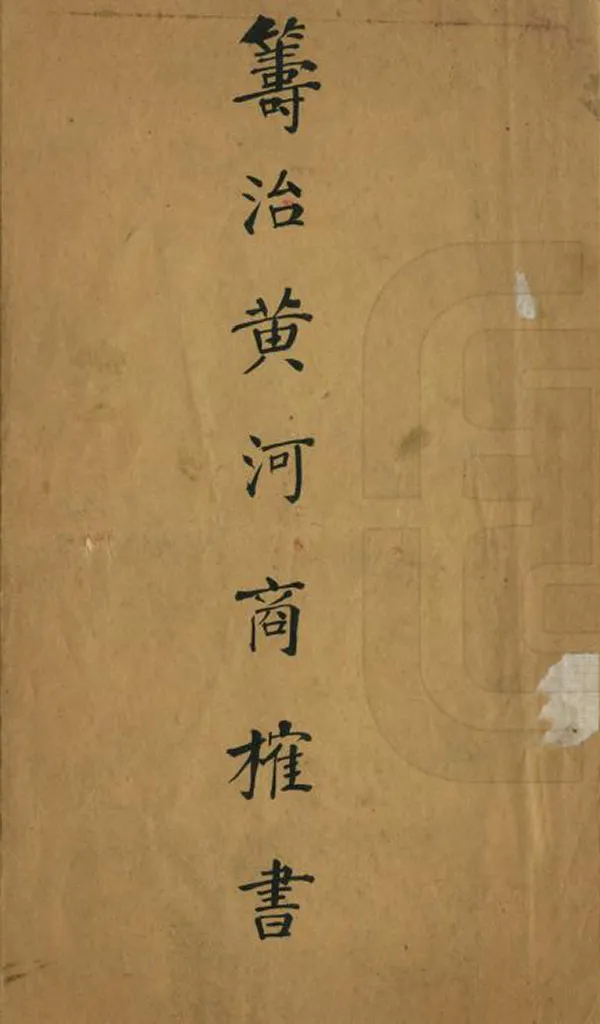 籌治黄河商榷書